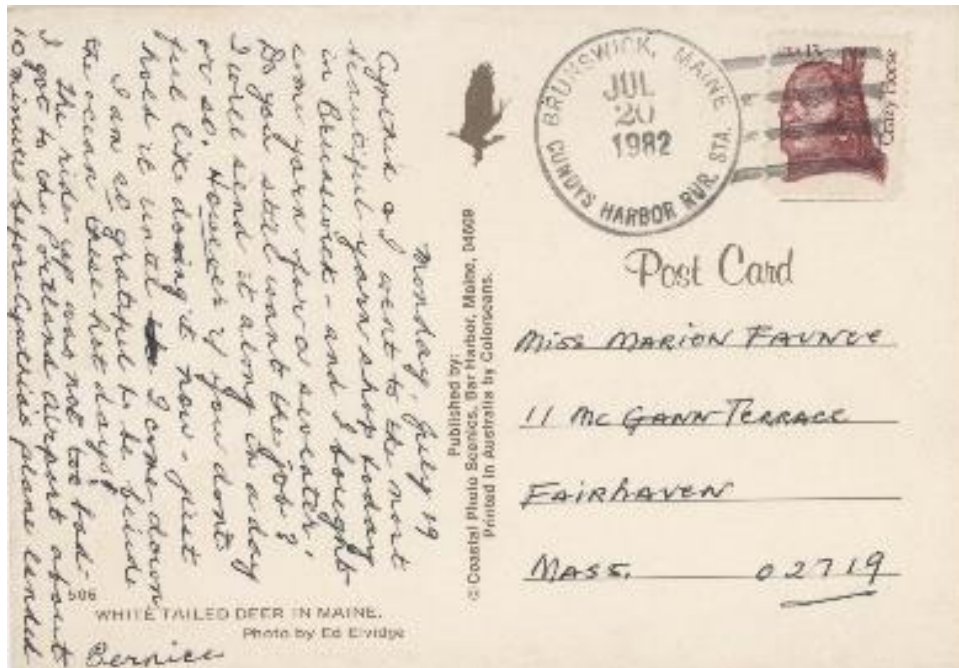 Monday, July 19
Cynthia & I went to the most
beautiful yarn shop today
in Brunswick - and I bought
some yarn for a sweater.
Do you still want the job?
I will send it along in a day
or so. However if you don't
feel like doing it now - just
hold it until I come down
I am so grateful to be beside
the ocean these hot days!
The ride up was not too bad -
I got to the Portland airport about
10 minutes before Cynthia's plane landed
Bernice
506
WHITE TAILED DEER IN MAINE.
Photo by Ed Elvidge
Published by:
© Coastal Photo Scenics, Bar Harbor, Maine, 04609
Printed in Australia by Colorscans.
BRUNSWICK, MAINE
JUL
20
1982
CUNDYS HARBOR RUR. STA.
USA 13
Crazy Horse
Post Card
Miss Marion Faunce
11 McGann Terrace
Fairhaven
Mass. 02719